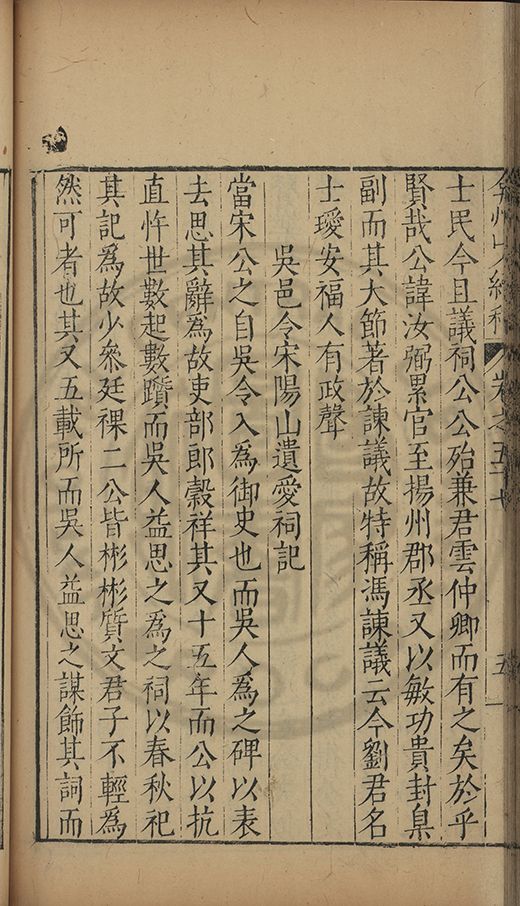 弇州山人續稿 卷之五十七 五
士民今且議祠公公殆兼君雲仲卿而有之矣於乎
賢哉公諱汝弼累官至揚州郡丞又以敏功貴封臬
副而其大節著於諫議故特稱馮諫議云今劉君名
士瑷安福人有政聲
吳邑令宋陽山遺愛祠記
當宋公之自吳令入為御史也而吳人為之碑以表
去思其辭為故吏部郎榖祥其又十五年而公以抗
直忤世數起數躓而吳人益思之為之祠以春秋祀
其記為故少叅廷祼二公皆彬彬質文君子不輕為
然可者也其又五載所而吳人益思之謀飾其詞而